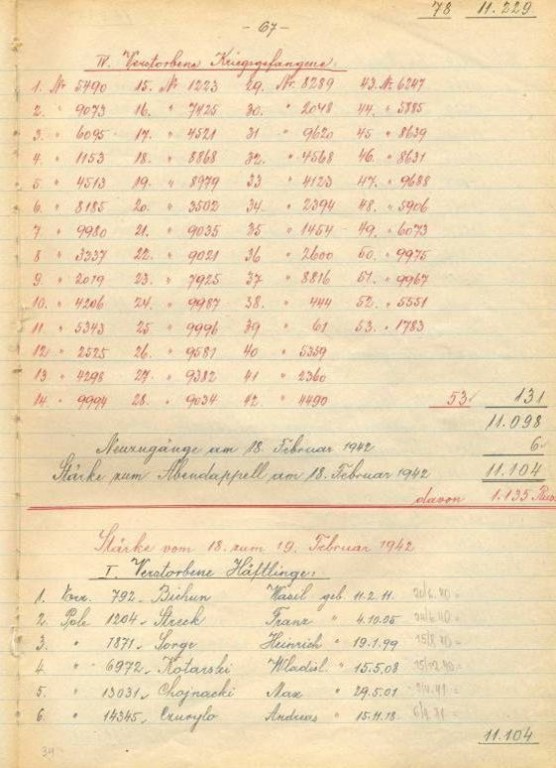 78 11.229
- 67 -
IV. Verstorbene Kriegsgefangene:
1. Nr 5490 15. Nr 1223 29. Nr. 8289 43. Nr. 6247
2. " 9073 16. " 7425 30. " 2048 44. " 5885
3. " 6095 17. " 4521 31 " 9620 45 " 8639
4. " 1153 18. " 8868 32. " 4568 46. " 8631
5. " 4513 19. " 8979 33 " 4123 47. " 9688
6. " 8185 20. " 3502 34. " 2394 48. " 5906
7. " 9980 21. " 9035 35 " 1454 49. " 6073
8 " 3337 22. " 9021 36 " 2600 50. " 9975
9. " 2019 23. " 7925 37 " 8816 51. " 9967
10. " 4206 24. " 9987 38. " 444 52. " 5551
11. " 5343 25 " 9996 39 " 61 53. " 1783
12. " 2525 26. " 9581 40 " 5359
13. " 4298 27. " 9382 41 " 2360
14. " 9994 28. " 9034 42. " 4490 53. 131
11.098
Neuzugänge am 18. Februar 1942 6.
Stärke zum Abendappell am 18. Februar 1942 11.104
davon 1.135
Stärke vom 18. zum 19. Februar 1942
I. Verstorbene Häftlinge:
1. 792 Biehun Wasil geb. 11.2.11.
2. Pole 1204 Streck Franz " 4.10.05
3. " 1871 Sorge Heinrich " 19.1.99
4. " 6972 Kotarski Wladisl. " 15.5.08
5. " 13031 Chojnacki Max " 29.5.01
6. " 14345 Czurylo Andreas " 15.11.18
11.104
34